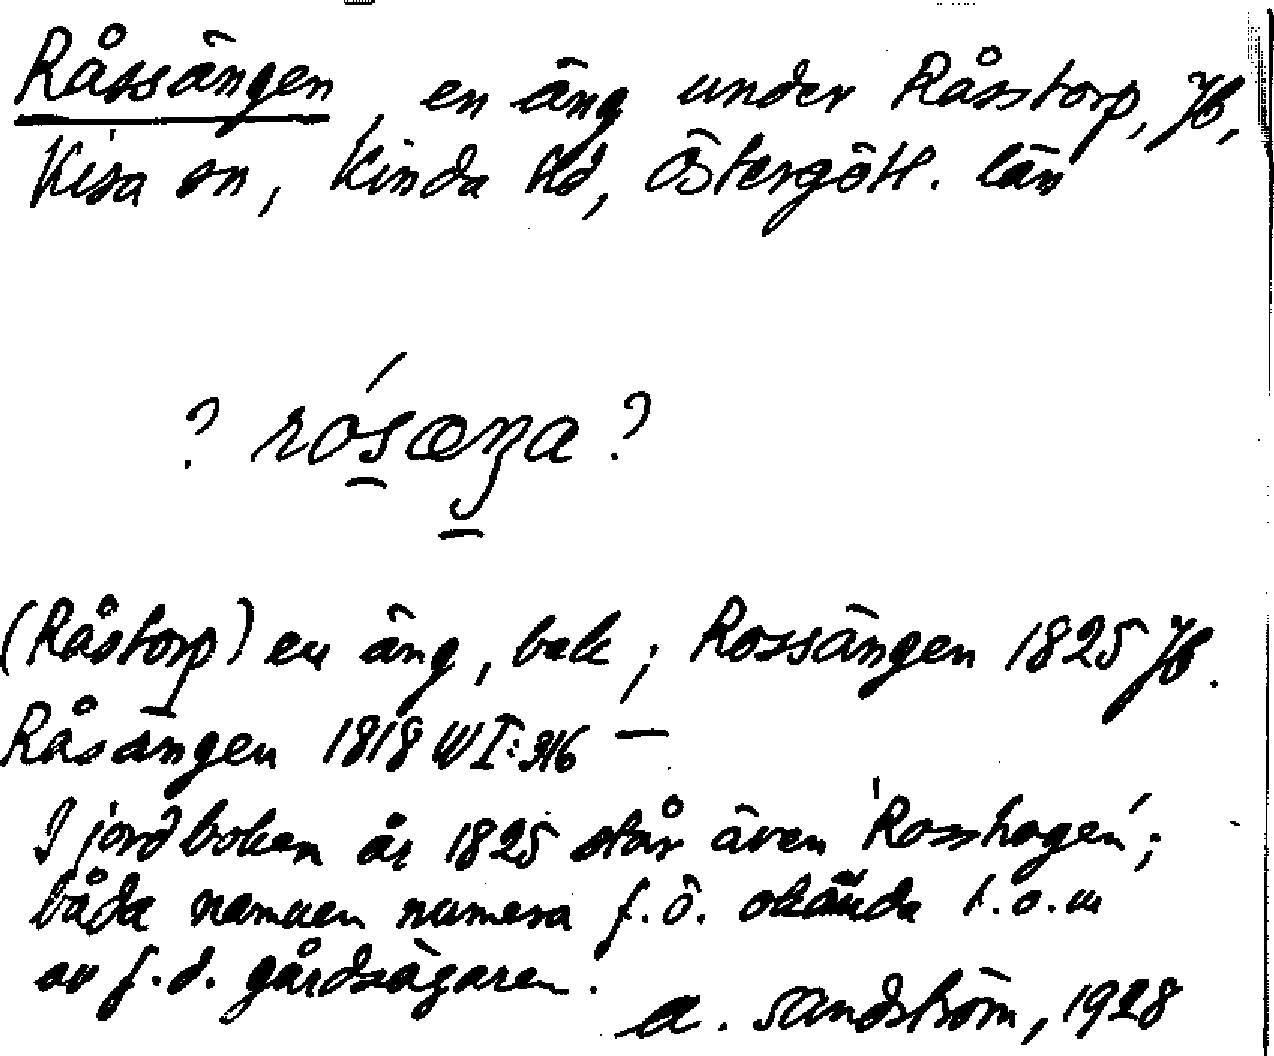 Råssängen, en äng under Råsstorp, Jb,
Kisa sn, Kinda hd, Östergötl. län
? rósæŋa ?
(Råstorp) en äng, bek; Rossängen 1825 Jb.
Råsängen 1818 W I: 316 —
I jordboken år 1825 står även 'Rosshagen';
båda namnen numera f.ö. okända t.o.m
av f.d. gårdsägaren.
A. Sandström, 1928